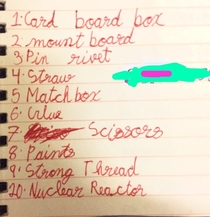 1. Card board box
2. mount board
3. Pin rivet
4. Straw
5. Match box
6. Glue
7. Scissors
8. Paints
9. Strong Thread
10. Nuclear Reactor